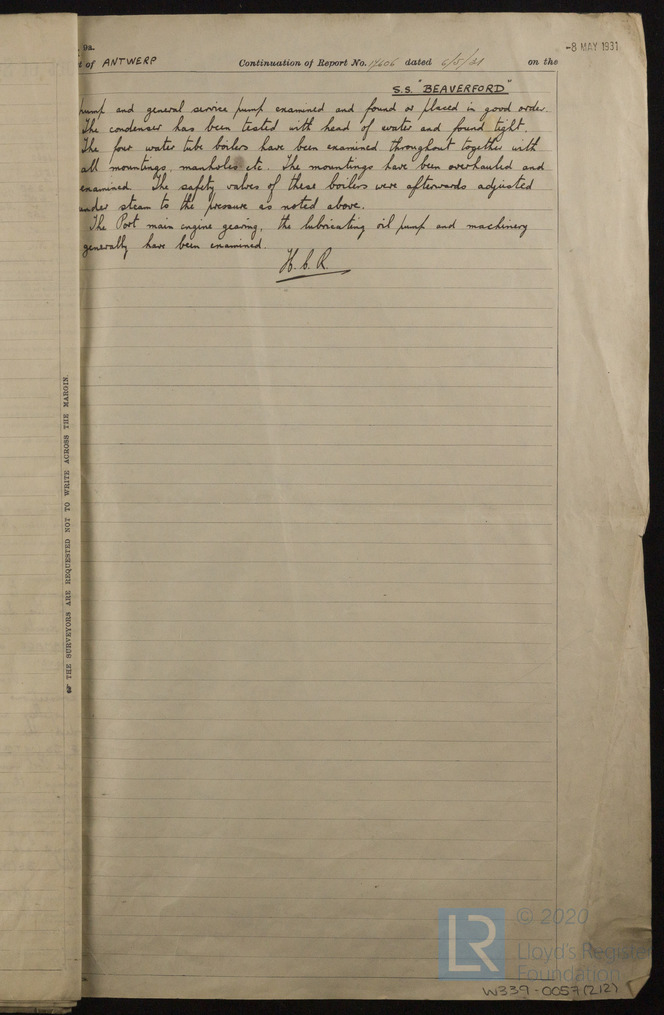 9a.
-8 MAY 1931
of ANTWERP Continuation of Report No. 17606 dated 6/5/31 on the
S.S. "BEAVERFORD"
pump and general service pump examined and found or placed in good order.
The condenser has been tested with head of water and found tight.
The four water tube boilers have been examined throughout together with
all mountings, manholes etc. The mountings have been overhauled and
examined The safety valves of these boilers were afterwards adjusted
under steam to the pressure as noted above.
The Port main engine gearing, the lubricating oil pump and machinery
generally have been examined.
THE SURVEYORS ARE REQUESTED NOT TO WRITE ACROSS THE MARGIN.
LR
© 2020
Lloyd's Register
Foundation
W339-0057(212)